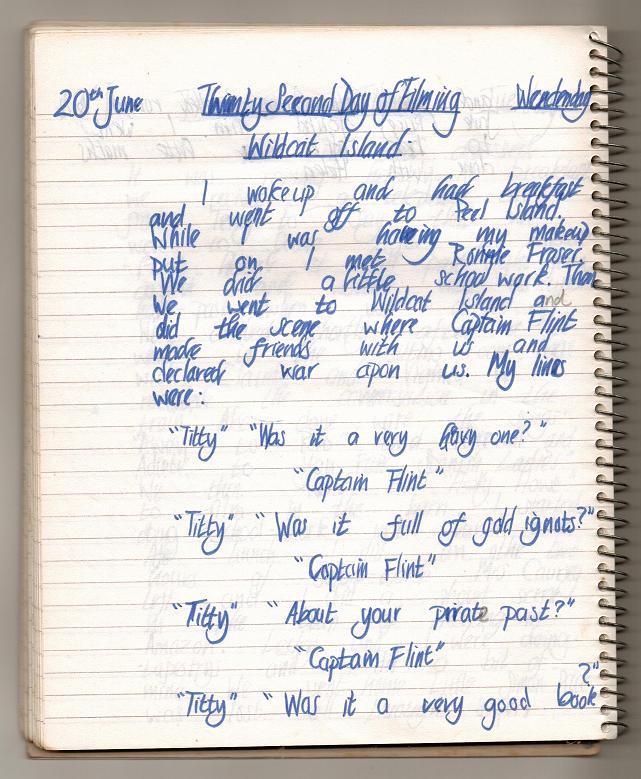 20th June Twenty Second Day of Filming Wendenday
Wildcat Island:
I wokeup and had breakfast
and went off to Peel Island.
While I was having my makeup
put on I met Ronnie Fraser.
We did a little school work. Than
we went to Wildcat Island and
did the scene where Captain Flint
made friends with us and
declared war apon us. My lines
were:
"Titty" "Was it a very havy one?"
"Captain Flint"
"Titty" "Was it full of gold ignots?"
"Captain Flint"
"Titty" "About your private past?"
"Captain Flint"
"Titty" "Was it a very good book?"